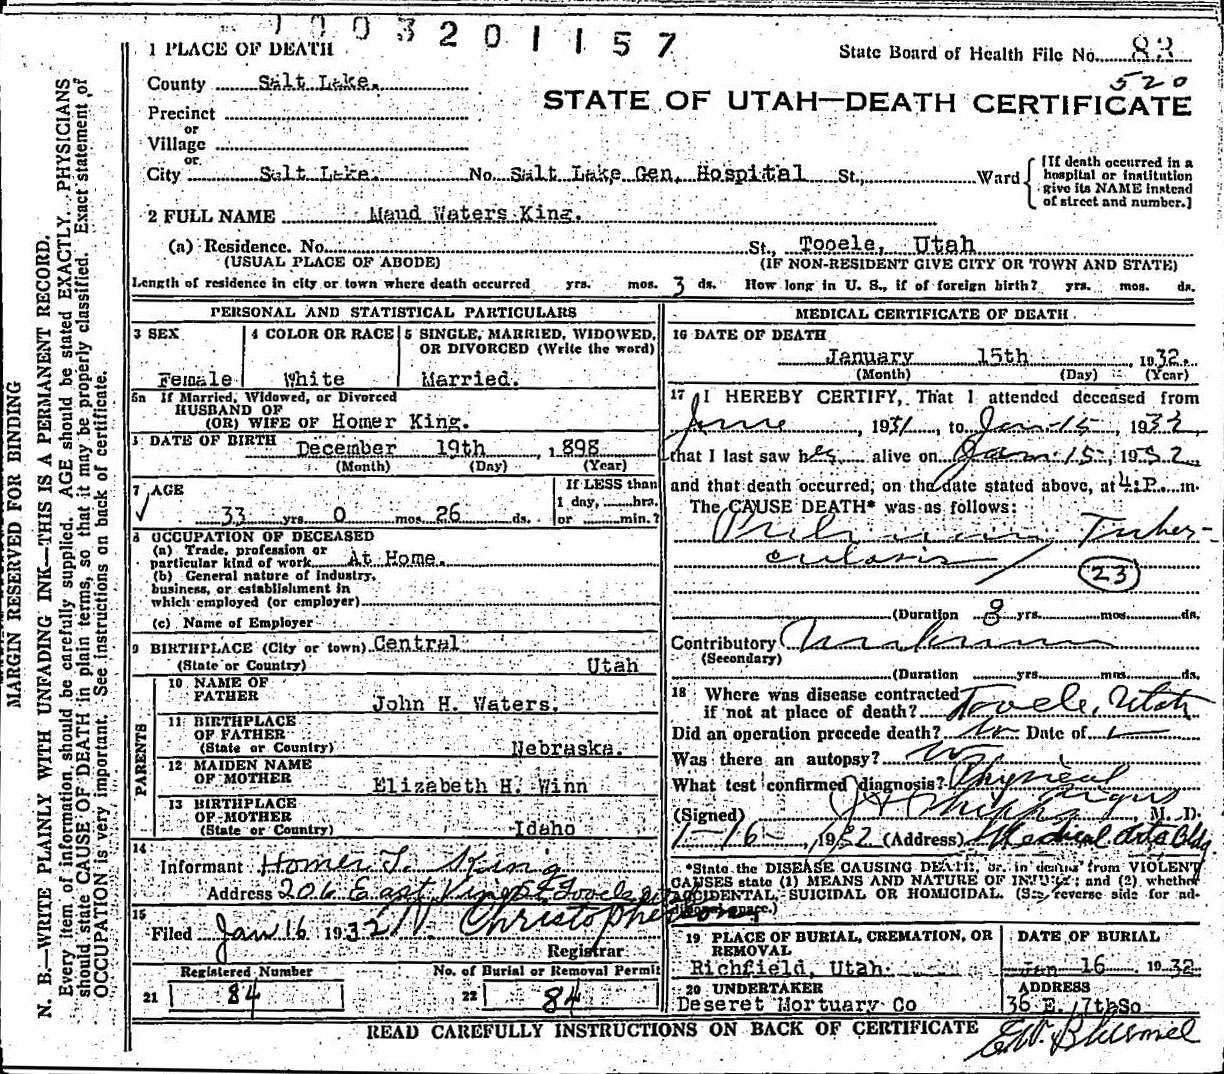 1003201157
1 PLACE OF DEATH
State Board of Health File No. 83
520
County Salt Lake.
STATE OF UTAH—DEATH CERTIFICATE
Precinct
or
Village
or
City Salt Lake. No. Salt Lake Gen. Hospital St., Ward
[If death occurred in a hospital or institution give its NAME instead of street and number.]
2 FULL NAME Maud Waters King.
(a) Residence. No. St., Tooele, Utah
(USUAL PLACE OF ABODE) (IF NON-RESIDENT GIVE CITY OR TOWN AND STATE)
Length of residence in city or town where death occurred yrs. mos. 3 ds. How long in U. S., if of foreign birth? yrs. mos. ds.
PERSONAL AND STATISTICAL PARTICULARS
3 SEX 4 COLOR OR RACE 5 SINGLE, MARRIED, WIDOWED, OR DIVORCED (Write the word)
Female White Married.
5a If Married, Widowed, or Divorced
HUSBAND OF
(OR) WIFE OF Homer King.
DATE OF BIRTH December 19th, 1898
(Month) (Day) (Year)
7 AGE If LESS than
1 day, hrs.
33 yrs. 0 mos. 26 ds. or min.?
8 OCCUPATION OF DECEASED
(a) Trade, profession or
particular kind of work At Home.
(b) General nature of Industry,
business, or establishment in
which employed (or employer)
(c) Name of Employer
9 BIRTHPLACE (City or town) Central
(State or Country) Utah
PARENTS
10 NAME OF
FATHER John H. Waters.
11 BIRTHPLACE
OF FATHER
(State or Country) Nebraska.
12 MAIDEN NAME
OF MOTHER Elizabeth H. Winn
13 BIRTHPLACE
OF MOTHER
(State or Country) Idaho
14
Informant Homer T. King
Address 206 East King St Tooele
15
Filed Jan 16 1932 N. Christopherson
Registrar
Registered Number No. of Burial or Removal Permit
21 84 22 84
MEDICAL CERTIFICATE OF DEATH
16 DATE OF DEATH
January 15th, 1932.
(Month) (Day) (Year)
17 I HEREBY CERTIFY, That I attended deceased from
June, 1931, to Jan 15, 1932,
that I last saw her alive on Jan 15, 1932,
and that death occurred, on the date stated above, at 4:P. m.
The CAUSE DEATH* was as follows:
Pulmonary Tuber-
culosis
23
(Duration 3 yrs. mos. ds.
Contributory Unknown
(Secondary)
(Duration yrs. mos. ds.
18 Where was disease contracted
if not at place of death? Tooele, Utah
Did an operation precede death? No Date of —
Was there an autopsy? No
What test confirmed diagnosis? Physical signs
(Signed) M. D.
1-16-, 1932 (Address) Medical Arts Bldg
*State the DISEASE CAUSING DEATH, or in deaths from VIOLENT
CAUSES state (1) MEANS AND NATURE OF INJURY; and (2) whether
ACCIDENTAL, SUICIDAL OR HOMICIDAL. (See reverse side for ad-
ditional space.)
19 PLACE OF BURIAL, CREMATION, OR REMOVAL DATE OF BURIAL
Richfield, Utah. Jan 16 1932
20 UNDERTAKER ADDRESS
Deseret Mortuary Co 36 E. 7th So
READ CAREFULLY INSTRUCTIONS ON BACK OF CERTIFICATE
MARGIN RESERVED FOR BINDING
N. B.—WRITE PLAINLY WITH UNFADING INK—THIS IS A PERMANENT RECORD.
Every item of information should be carefully supplied. AGE should be stated EXACTLY. PHYSICIANS
should state CAUSE OF DEATH in plain terms, so that it may be properly classified. Exact statement of
OCCUPATION is very important. See instructions on back of certificate.